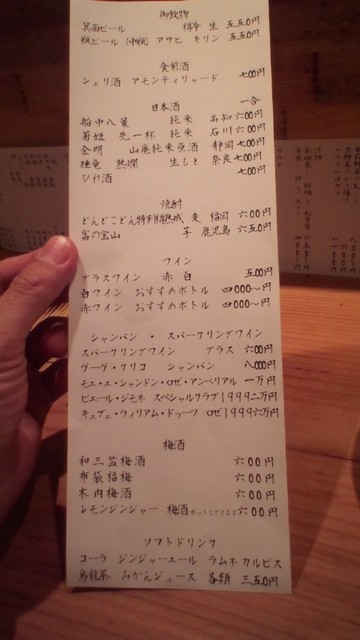 御飲物
箕面ビール 樽 生 五五〇円
瓶ビール (中瓶) アサヒ キリン 五五〇円
食前酒
シェリ酒 アモンティリャード 七00円
日本酒 一合
船中八策 純米 高知 六00円
菊姫 先一杯 純米 石川 六00円
金明 山廃純米原酒 静岡 七00円
睡龍 熱燗 生もと 奈良 七00円
ひれ酒 七00円
焼酎
どんどこどん特別熟成 麦 福岡 六00円
富の宝山 芋 鹿児島 六五0円
ワイン
グラスワイン 赤 白 五00円
白ワイン おすすめボトル 四000〜円
赤ワイン おすすめボトル 四000〜円
シャンパン・スパークリングワイン
スパークリングワイン グラス 六00円
ヴーヴ・クリコ シャンパン 八000円
モエ・エ・シャンドン・ロゼ・アンペリアル 一万円
ピエール・ジモネ スペシャルクラブ1999二万円
キュヴェ・ウィリアム・ドゥーツ ロゼ1999六万円
梅酒
和三盆梅酒 六00円
布袋福梅 六00円
木内梅酒 六00円
レモンジンジャー 梅酒 ホットもできます 六00円
ソフトドリンク
コーラ ジンジャーエール ラムネ カルピス
烏龍茶 みかんジュース 各種 三五0円